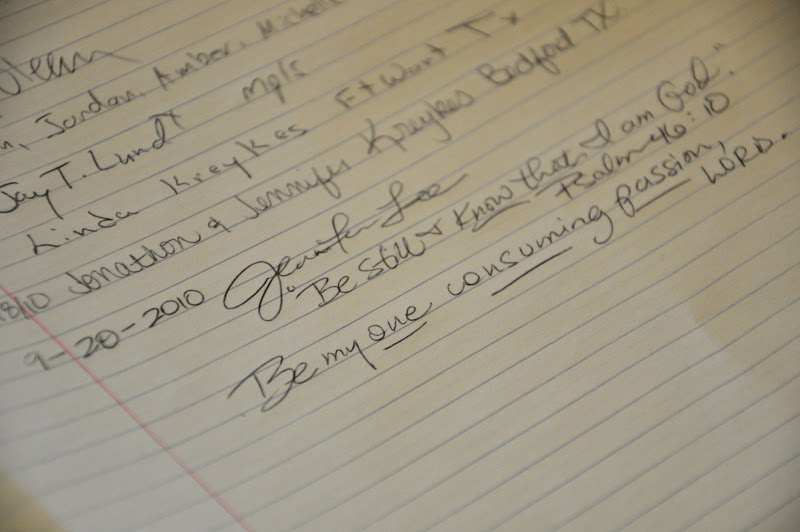 Jordan, Amber, Michelle
Jay T. Lundt Mpls
Linda Kreykes Ft Wort Tx
18/10 Jonathon & Jennifer Kreykes Bedford TX
9-20-2010 Jennifer Lee
Be Still & Know that I am God."
Psalm 46:10
Be my one consuming passion,
LORD.